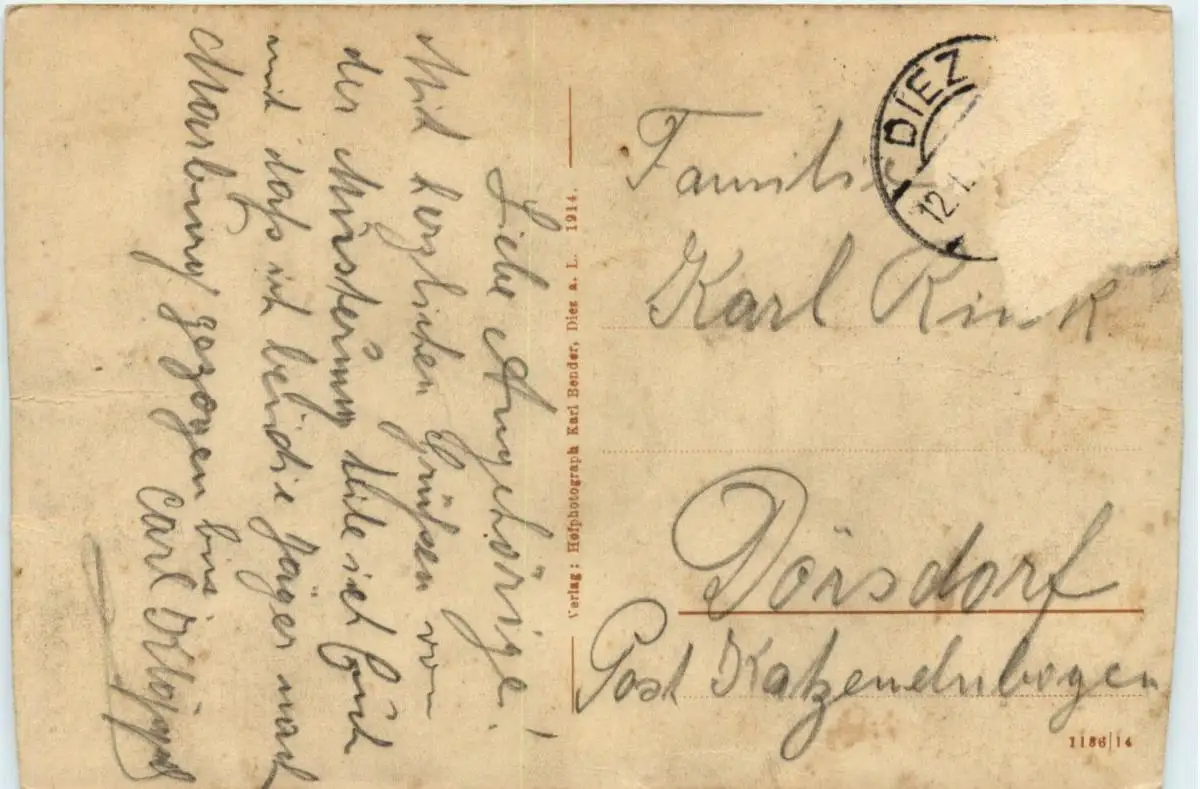 Liebe Angehörige!
Mit herzlichen Grüßen von
der Musterung teile ich Euch
mit daß ich bei die Jäger nach
Marburg gezogen bin
Carl
Verlag: Hofphotograph Karl Bender, Diez a. L. 1914.
DIEZ
12.1.
Familie
Karl Rink
Dörsdorf
Post Katzenelnbogen
1186/14